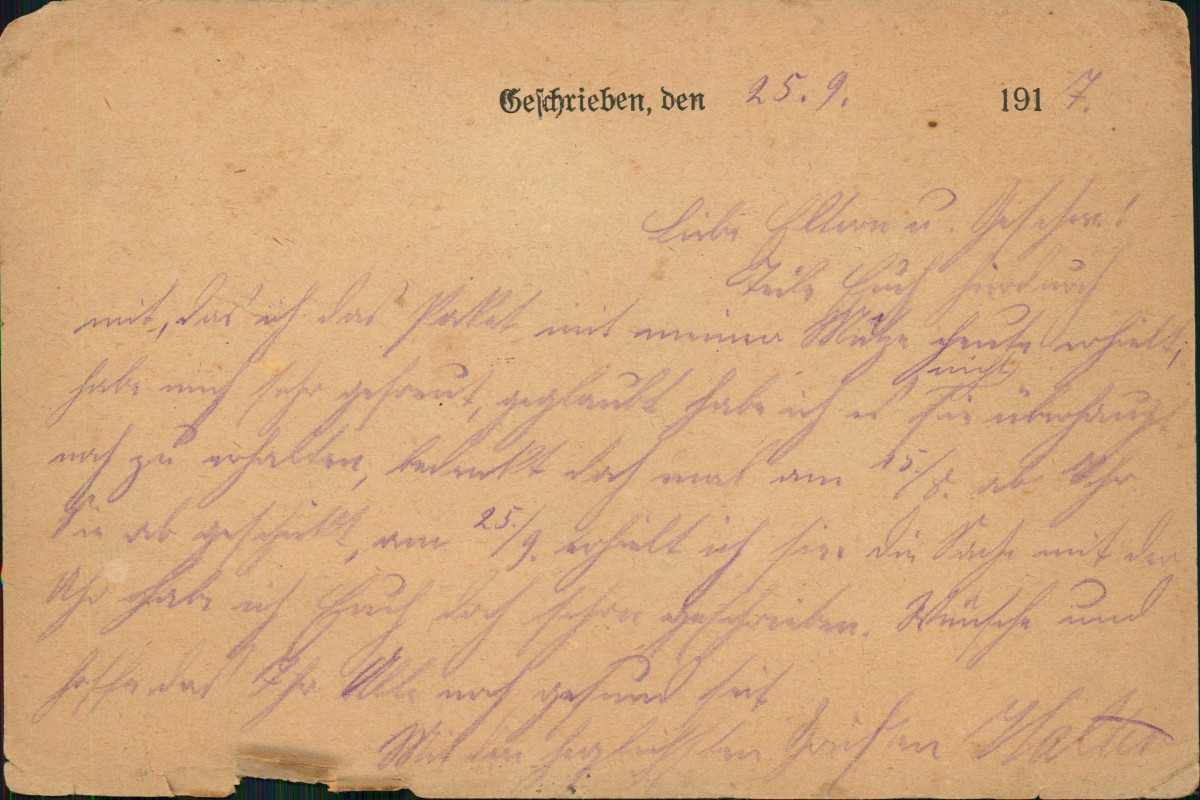 Geschrieben, den 25. 9. 1917.
Liebe Eltern u. Geschw.!
Teile Euch hierdurch
mit, das ich das Packet mit meiner Mütze heute erhielt,
nicht
habe mich sehr gefreut, geglaubt habe ich es sie überhaupt
noch zu erhalten, bedenkt doch mal am 15./8. ab Ihr
sie ab geschickt, am 25./9. erhielt ich sie. die Sache mit der
Uhr habe ich Euch doch schon geschrieben. Wünsche und
hoffe das Ihr Alle noch gesund seit
Mit den herzlichsten Grüßen